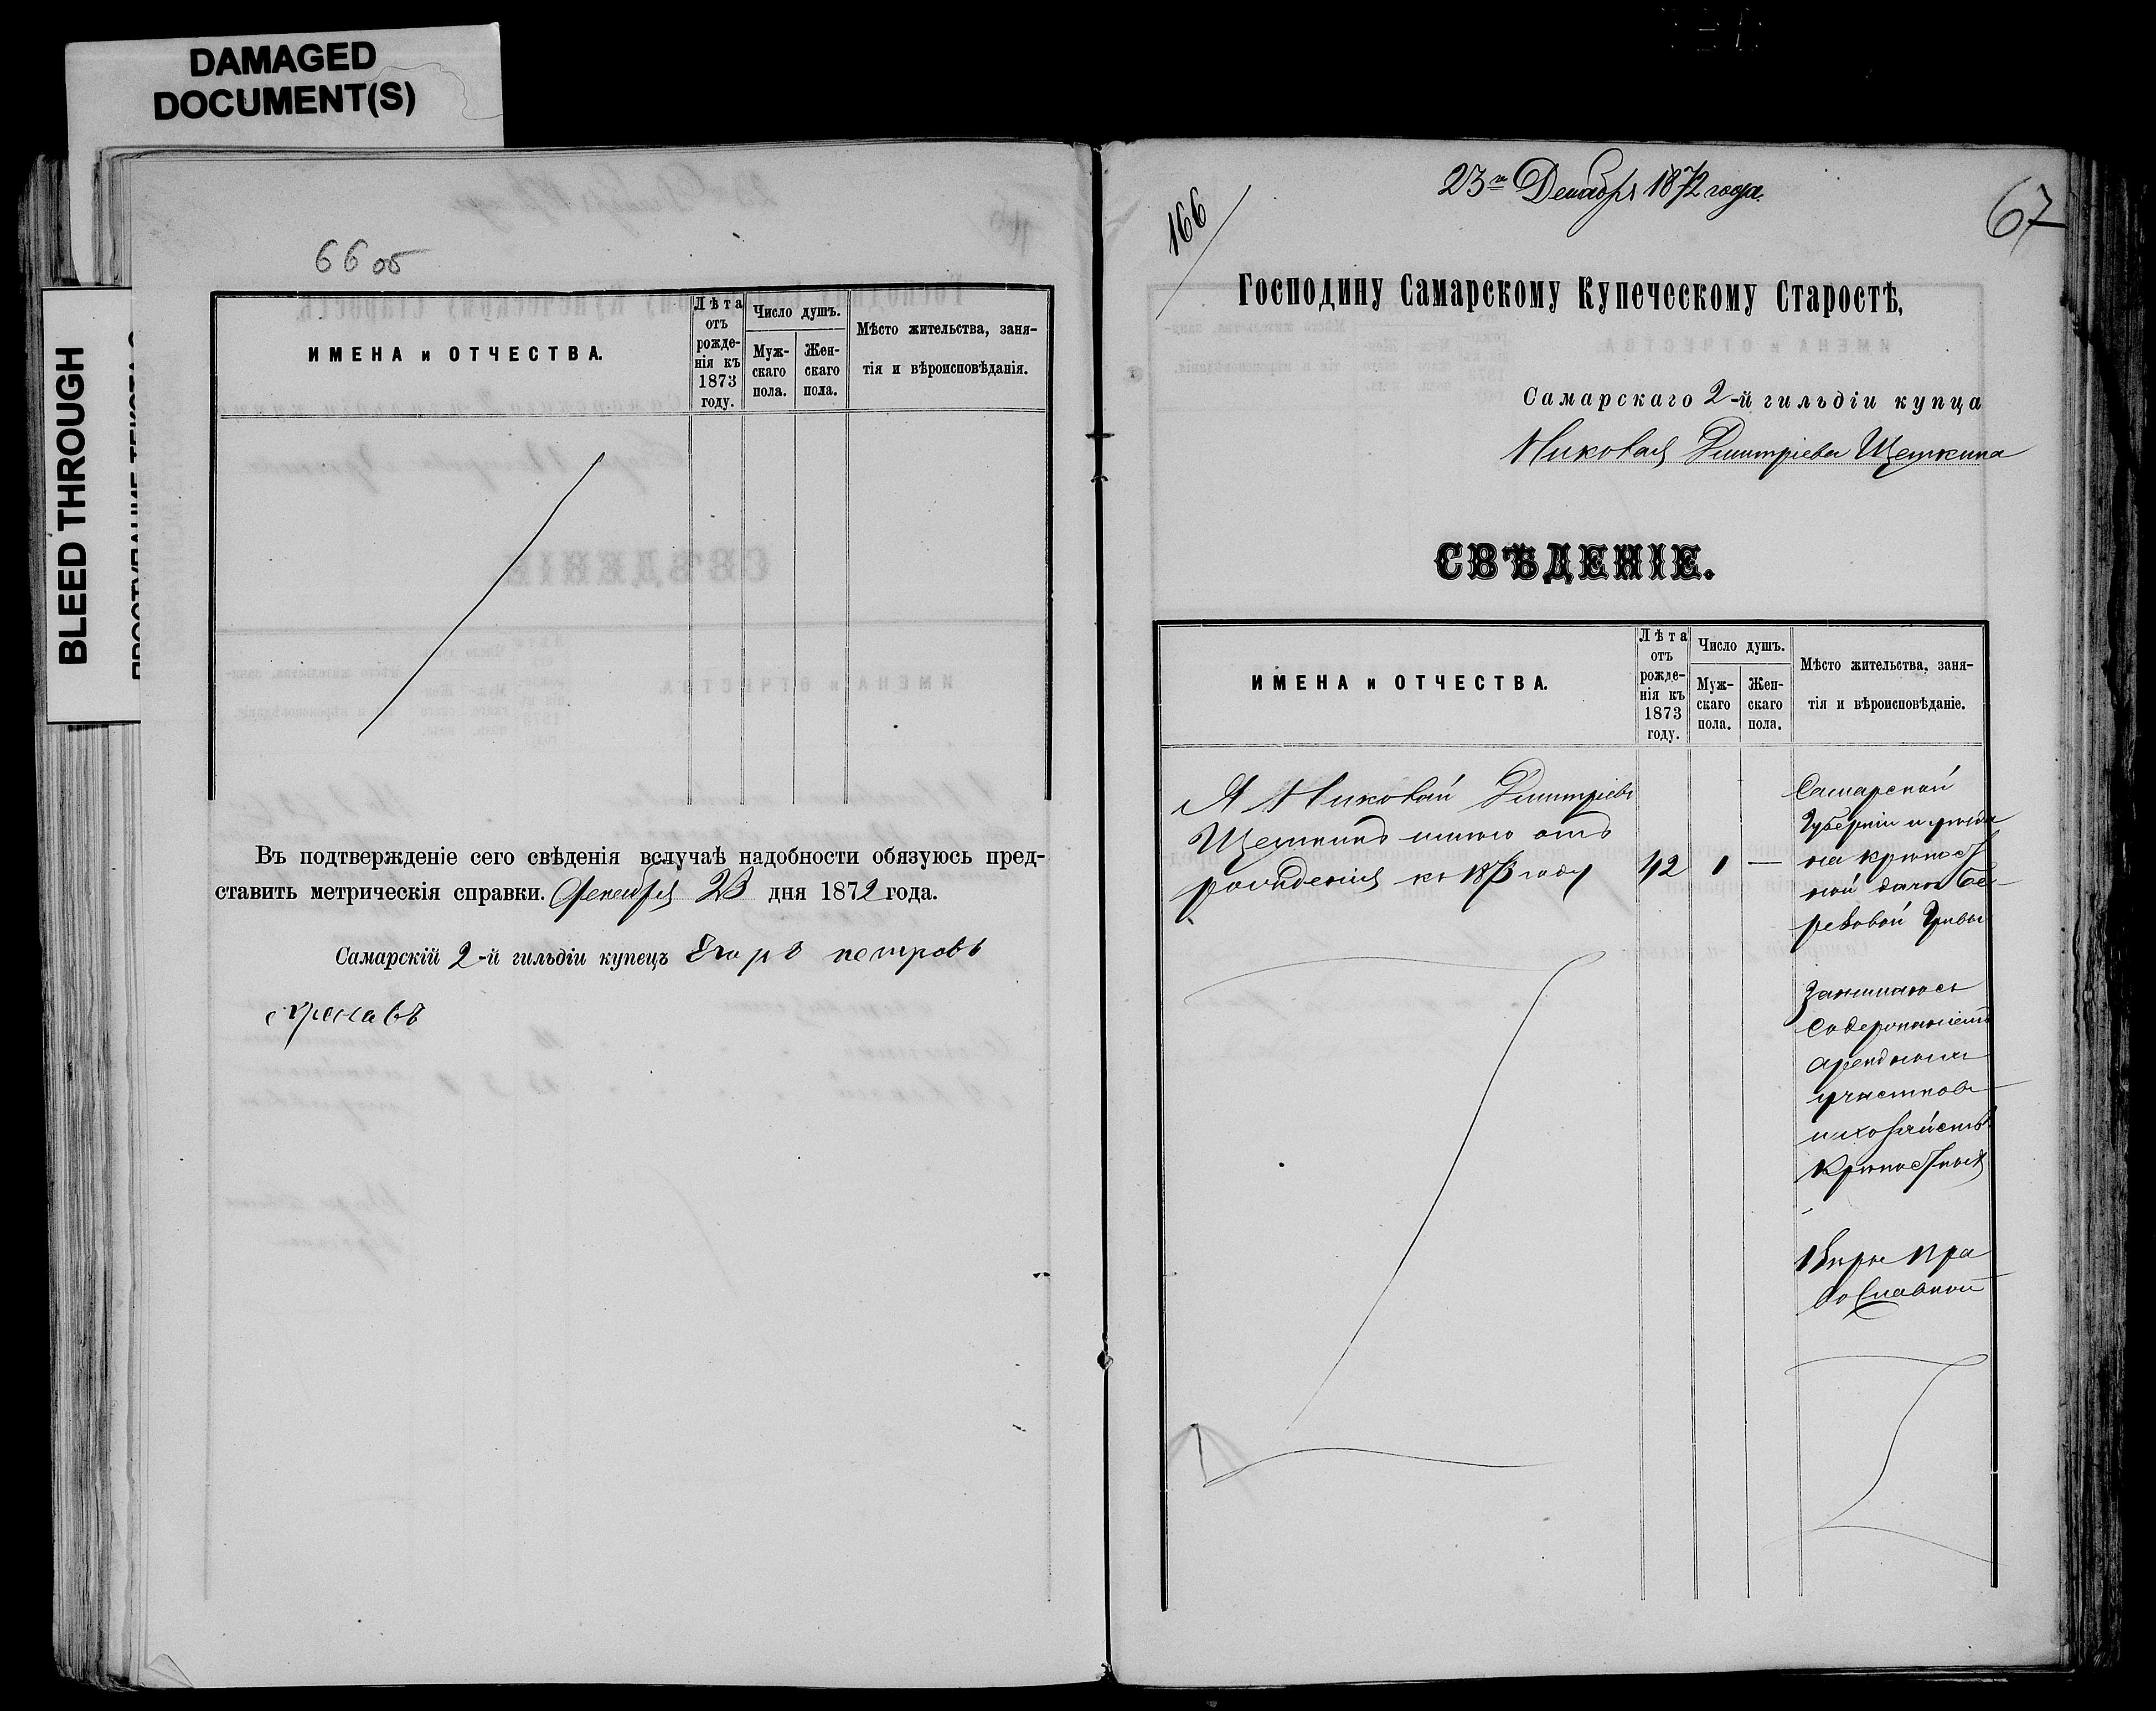 DAMAGED
DOCUMENT(S)
BLEED THROUGH
66 об
ИМЕНА и ОТЧЕСТВА.
Лѣта отъ рожде-нія къ 1873 году.
Число душъ.
Муж-скаго пола.
Жен-скаго пола.
Мѣсто жительства, заня-
тія и вѣроисповѣданія.
Въ подтвержденіе сего свѣденія вслучаѣ надобности обязуюсь пред-
ставить метрическія справки. Декабря 23 дня 1872 года.
Самарскій 2-й гильдіи купецъ Егоръ петровъ
166
23го Декабря 1872 года.
67
Господину Самарскому Купеческому Старостѣ,
Самарскаго 2-й гильдіи купца
Николая Дмитріева Щеткина
СВѢДЕНІЕ.
ИМЕНА и ОТЧЕСТВА.
Лѣта отъ рожде-нія къ 1873 году.
Число душъ.
Муж-скаго пола.
Жен-скаго пола.
Мѣсто жительства, заня-
тія и вѣроисповѣданіе.
Я Николай Дмитріевъ
Щеткинъ имѣю отъ
рожденія къ 1873 году 42 1 —
Самарской
Губерніи и уѣзда
на крѣпост
ной дачи Бе
резовой Гривы
Занимаюсь
Содержаніемъ
арендныхъ
участковъ
и хозяйствъ
Крѣпостныхъ
Вѣры Пра
вославной